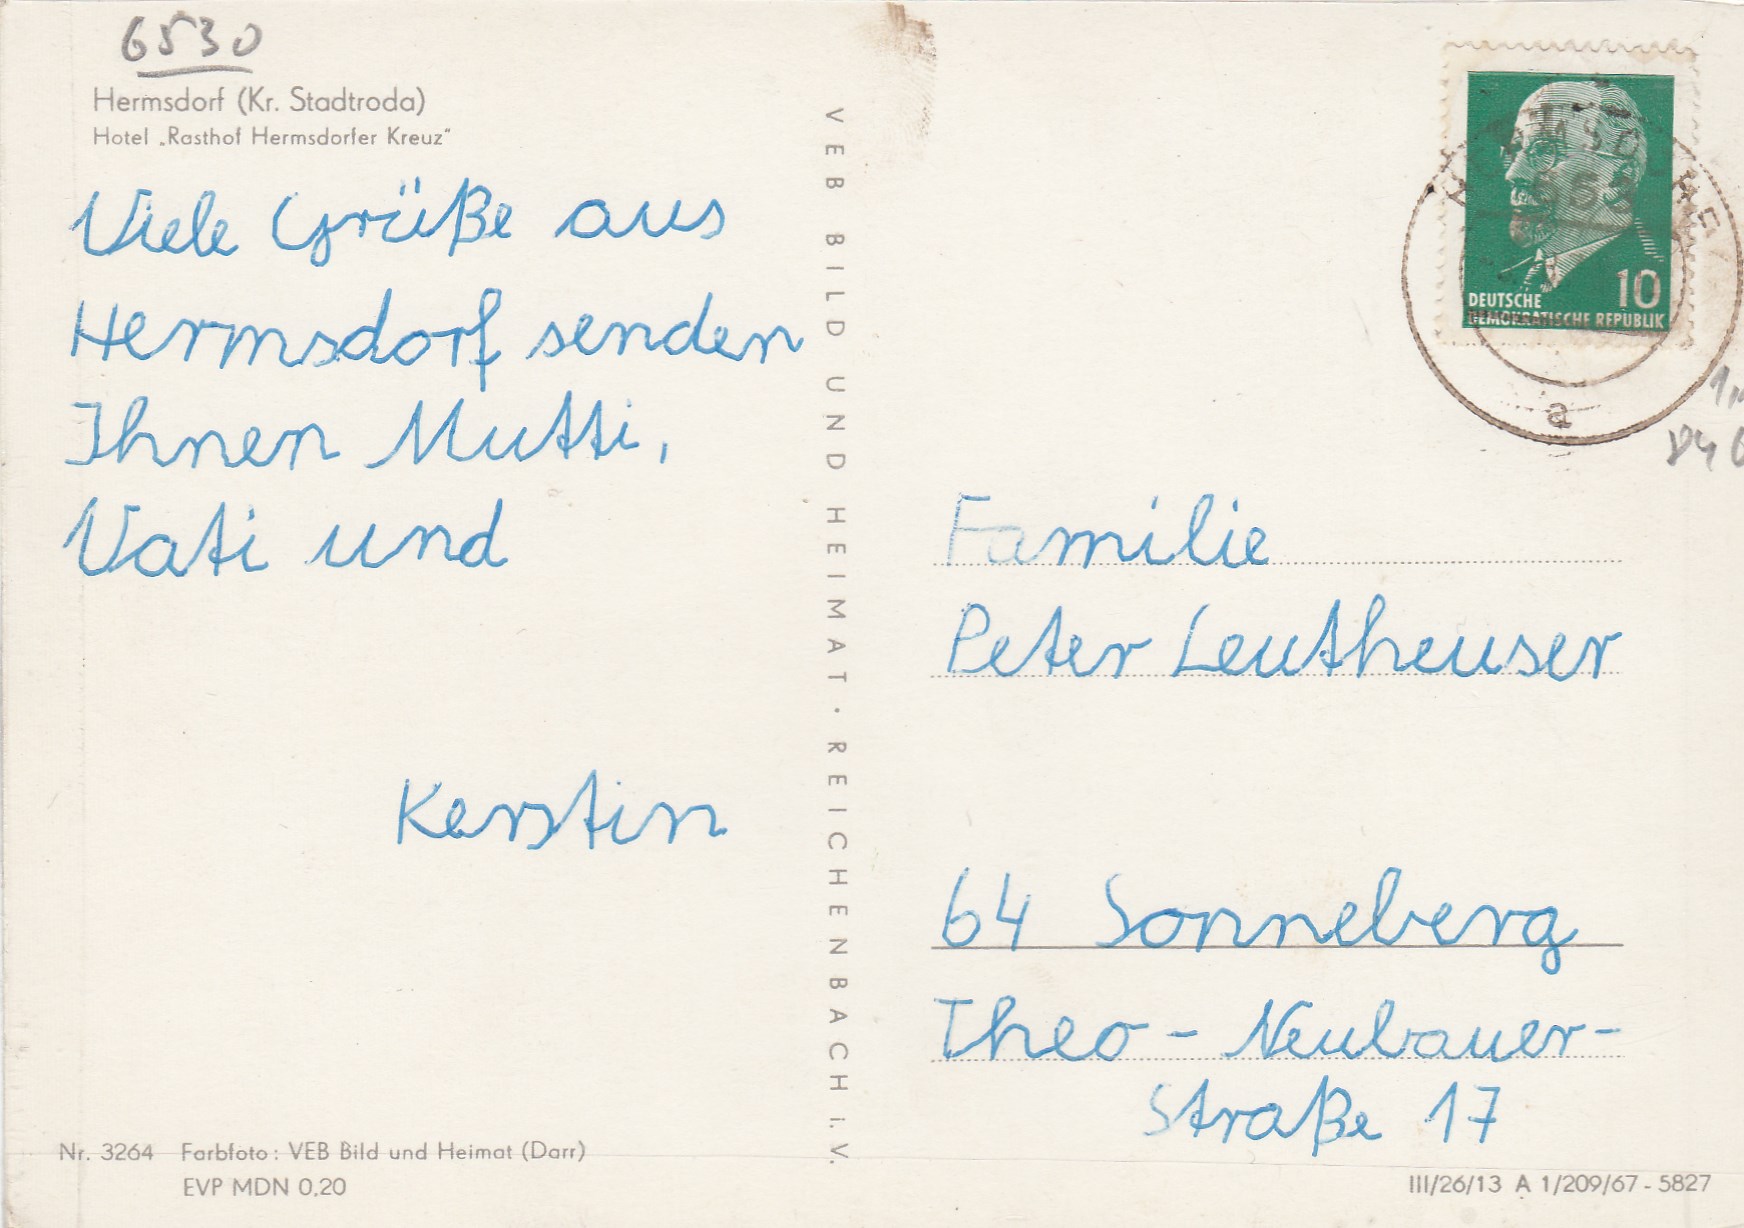 6530
Hermsdorf (Kr. Stadtroda)
Hotel „Rasthof Hermsdorfer Kreuz"
Viele Grüße aus
Hermsdorf senden
Ihnen Mutti,
Vati und
Kerstin
Nr. 3264 Farbfoto: VEB Bild und Heimat (Darr)
EVP MDN 0,20
VEB BILD UND HEIMAT · REICHENBACH i. V.
10
DEUTSCHE
DEMOKRATISCHE REPUBLIK
a
Familie
Peter Leutheuser
64 Sonneberg
Theo-Neubauer-
Straße 17
III/26/13 A 1/209/67-5827